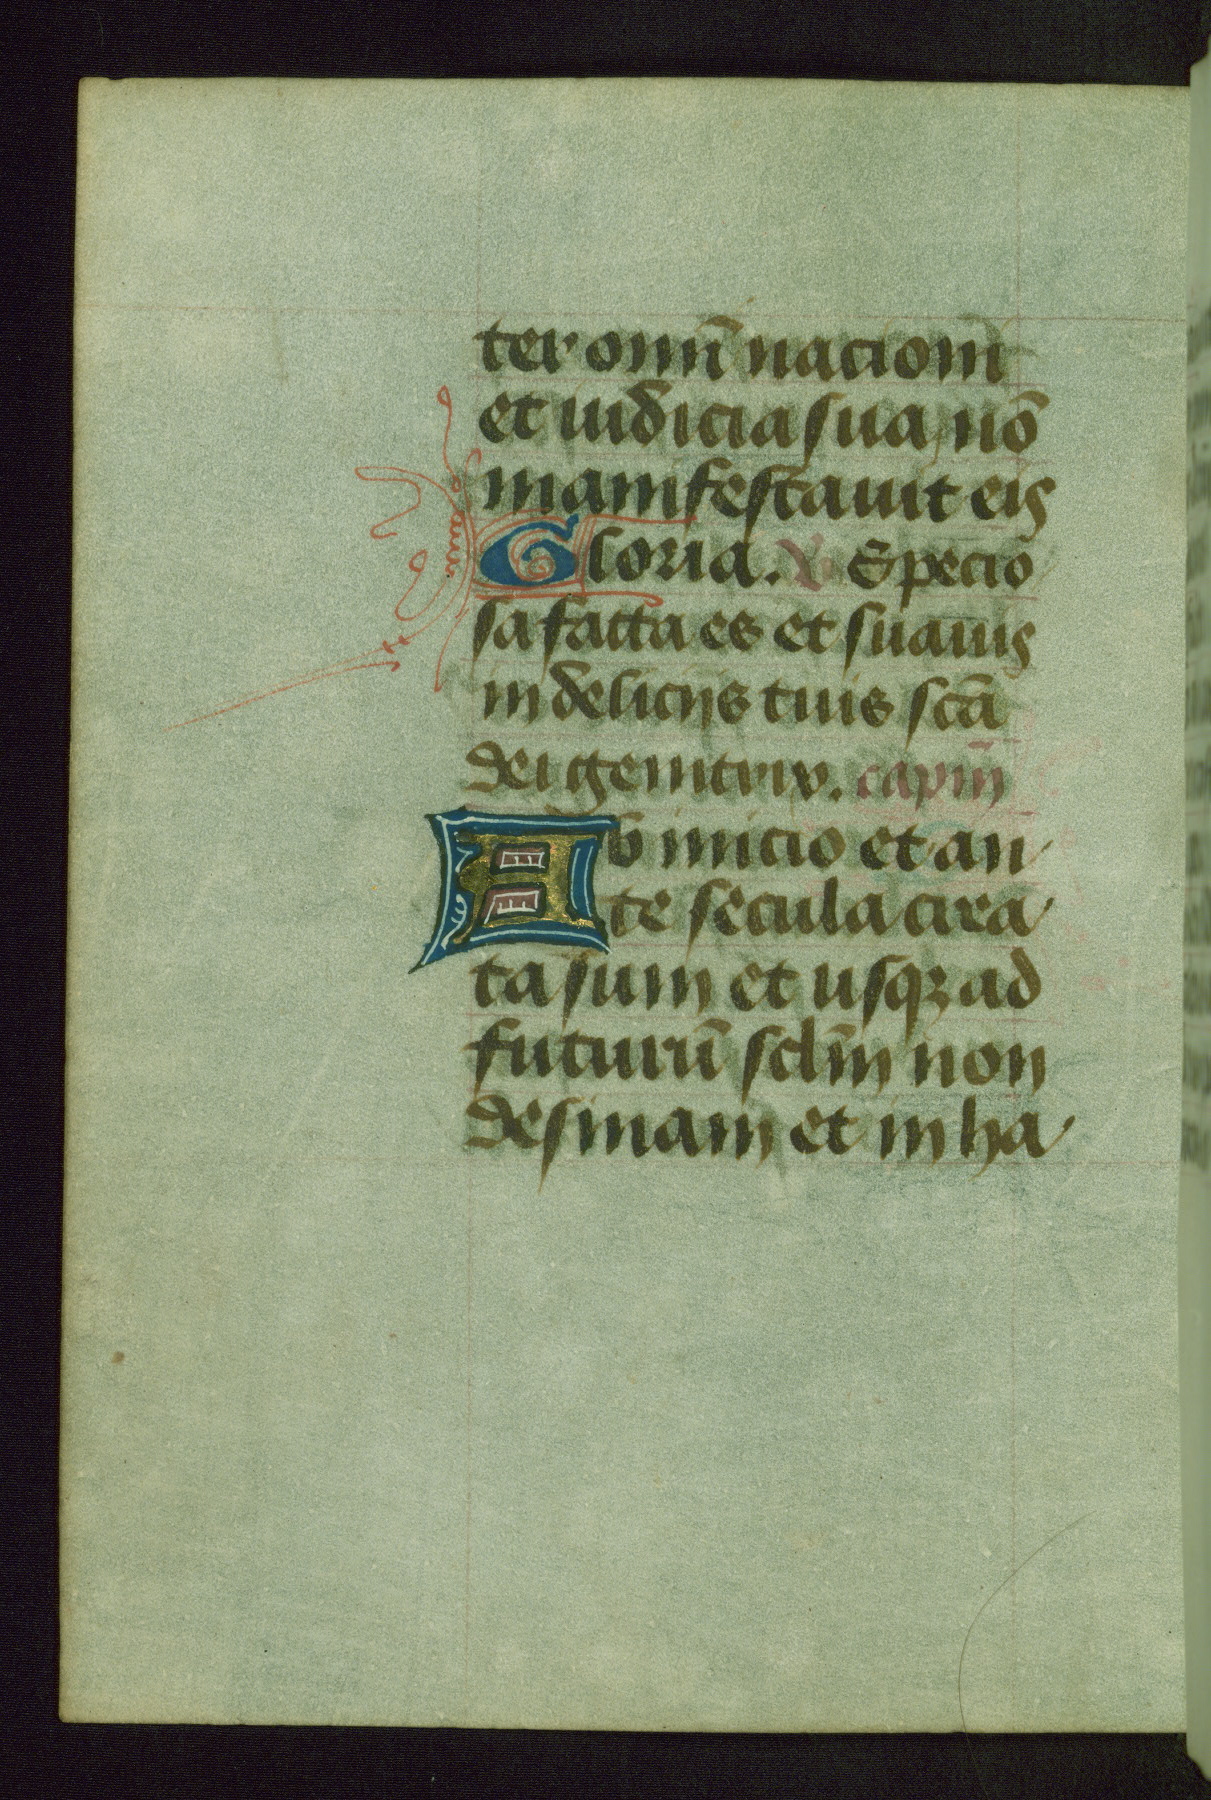 ter omī nacioni
et iudicia sua nō
manifestauit eis
Gloria. V Specio
sa facta es et suauis
in delicijs tuis scā
dei genitrix. capm̄
Ab inicio et an
te secula crea
ta sum et usqꝫ ad
futurū sclm̄ non
desinam et in ha